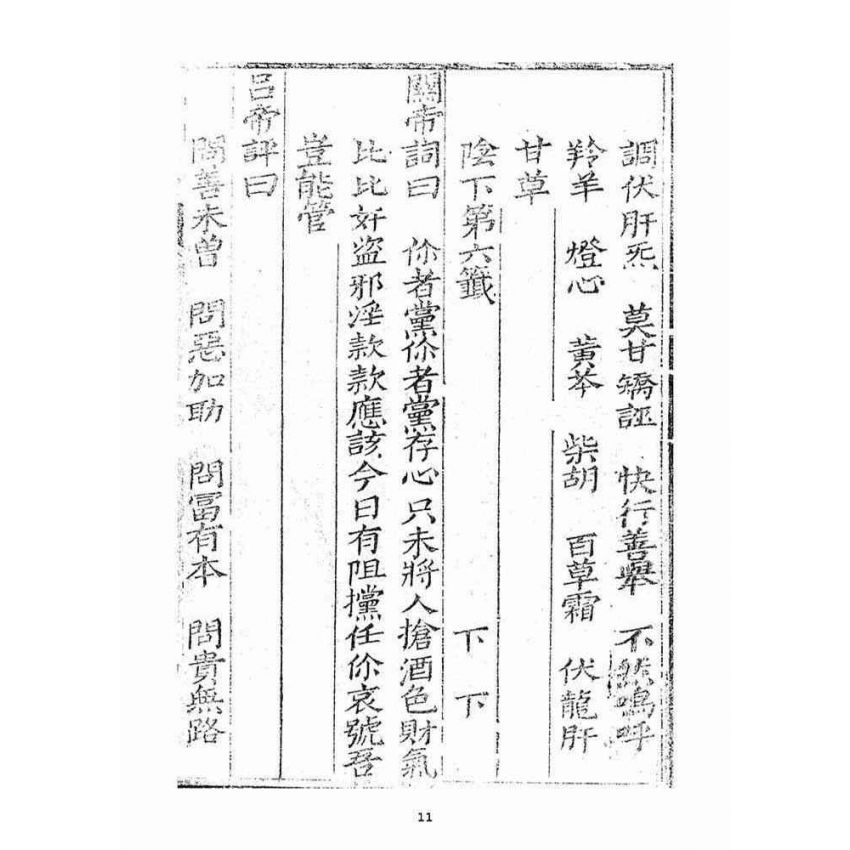 調伏肝炁　莫甘矯誣　快行善舉　不然嗚呼
羚羊　燈心　黄芩　柴胡　百草霜　伏龍肝
甘草
陰下第六籤　下下
關帝詞曰　你者黨你者黨存心只未將人搶酒色財氣
比比奸盗邪淫款款應該今日有阻攩任你哀號吾
豈能管
吕帝評曰
問善未曽　問惡加助　問冨有本　問貴無路
11